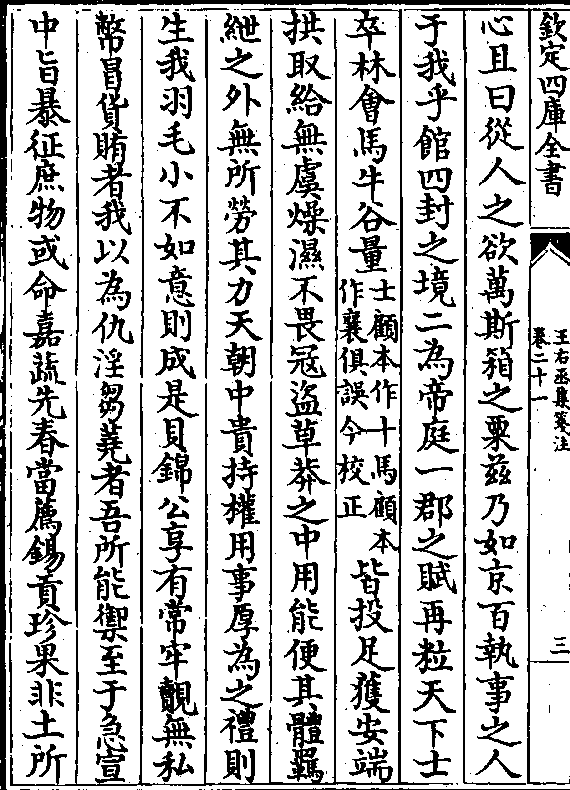 欽定四庫全書
王右丞集箋注
卷二十一
三
心且曰從人之欲萬斯箱之粟兹乃如京百執事之人
于我乎館四封之境二為帝庭一郡之賦再粒天下士
卒林會馬牛谷量士顧本作十馬顧本
作襄俱誤今校正皆投足獲安端
拱取給無虞燥濕不畏冦盜草莽之中用能便其體羈
紲之外無所勞其力天朝中貴持權用事厚為之禮則
生我羽毛小不如意則成是貝錦公享有常牢覿無私
幣冒貨賄者我以為仇淫芻蕘者吾所能禦至于急宣
中旨暴征庶物或命嘉蔬先春當薦錫貢珍果非土所